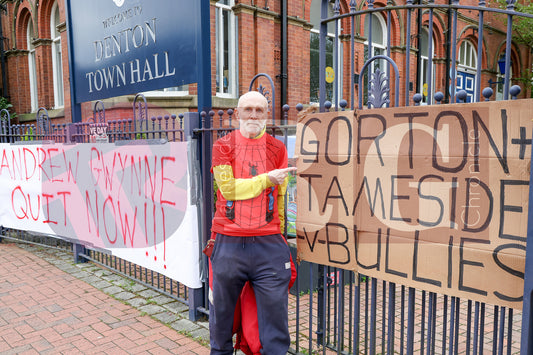 WELCOME TO
DENTON
TOWN HALL
ANDREW GWYNNE
QUIT NOW!!!
GORTON +
TAMESIDE
V-BULLIES